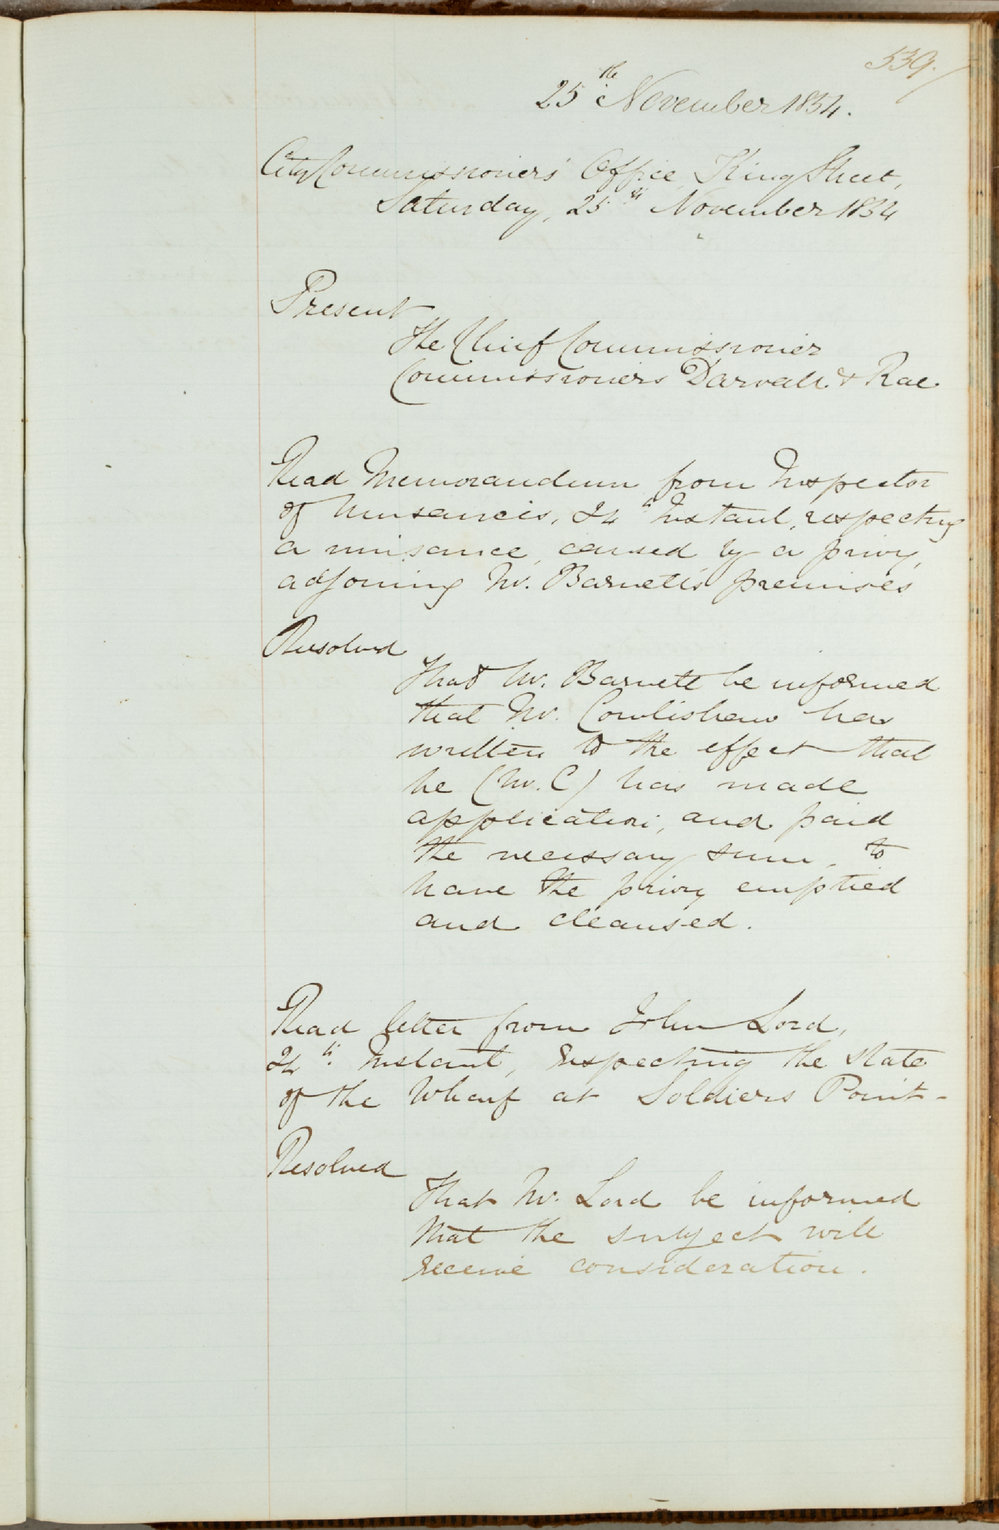 539.
25th November 1854.
City Commissioners' Office, King Street,
Saturday, 25th November 1854
Present
The Chief Commissioner
Commissioners Darvall & Rae.
Read Memorandum from Inspector
of Nuisances, 24th Instant, respecting
a nuisance, caused by a privy,
adjoining Mr. Barnett's premises
Resolved
That Mr. Barnett be informed
that Mr. Cowlishaw has
written to the effect that
he (Mr. C) has made
application, and paid
the necessary sum, to
have the privy emptied
and cleansed.
Read letter from John Lord,
24th Instant, respecting the state
of the Wharf at Soldiers Point-
Resolved
That Mr. Lord be informed
that the subject will
receive consideration.